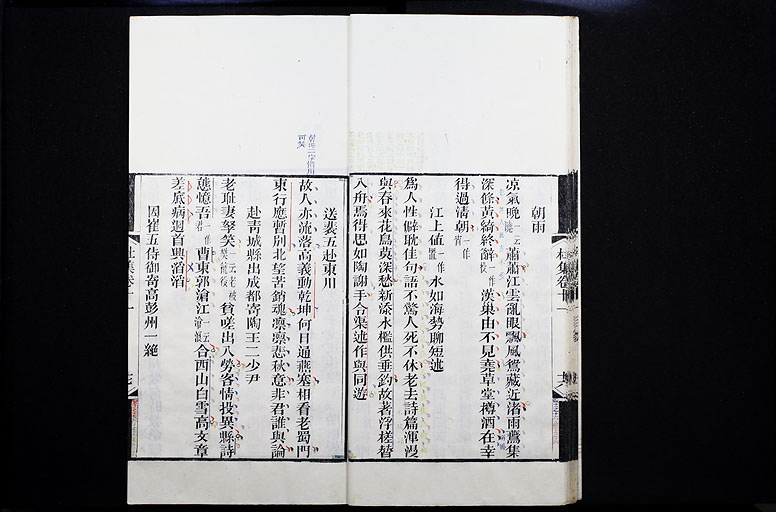 朝雨
凉氣晚一云曉蕭蕭江雲亂眼飄風鴛藏近渚雨鷰集
深條黃綺終辭一作漢巢由不見堯草堂樽酒在幸
得過清朝一作宵
江上值一作置水如海勢聊短述
爲人性僻耽佳句語不驚人死不休老去詩篇渾漫
與春來花鳥莫深愁新添水檻供垂釣故著浮槎替
入舟焉得思如陶謝手令渠述作與同遊
送裴五赴東川
故人亦流落高義動乾坤何日通燕塞相看老蜀門
東行應暫別北望苦銷魂凛凛悲秋意非君誰與論
赴青城縣出成都寄陶王二少尹
老耻妻孥笑一云貧嗟出入勞客情投異縣詩
態憶吾一作君曹東郭滄江一云合西山白雪高文章
差底病迴首興滔滔
因崔五侍御寄高彭州一絶
杜集卷十一